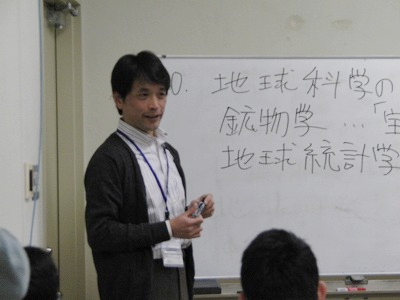 0. 地球科学の
鉱物学…「宝
地球統計学